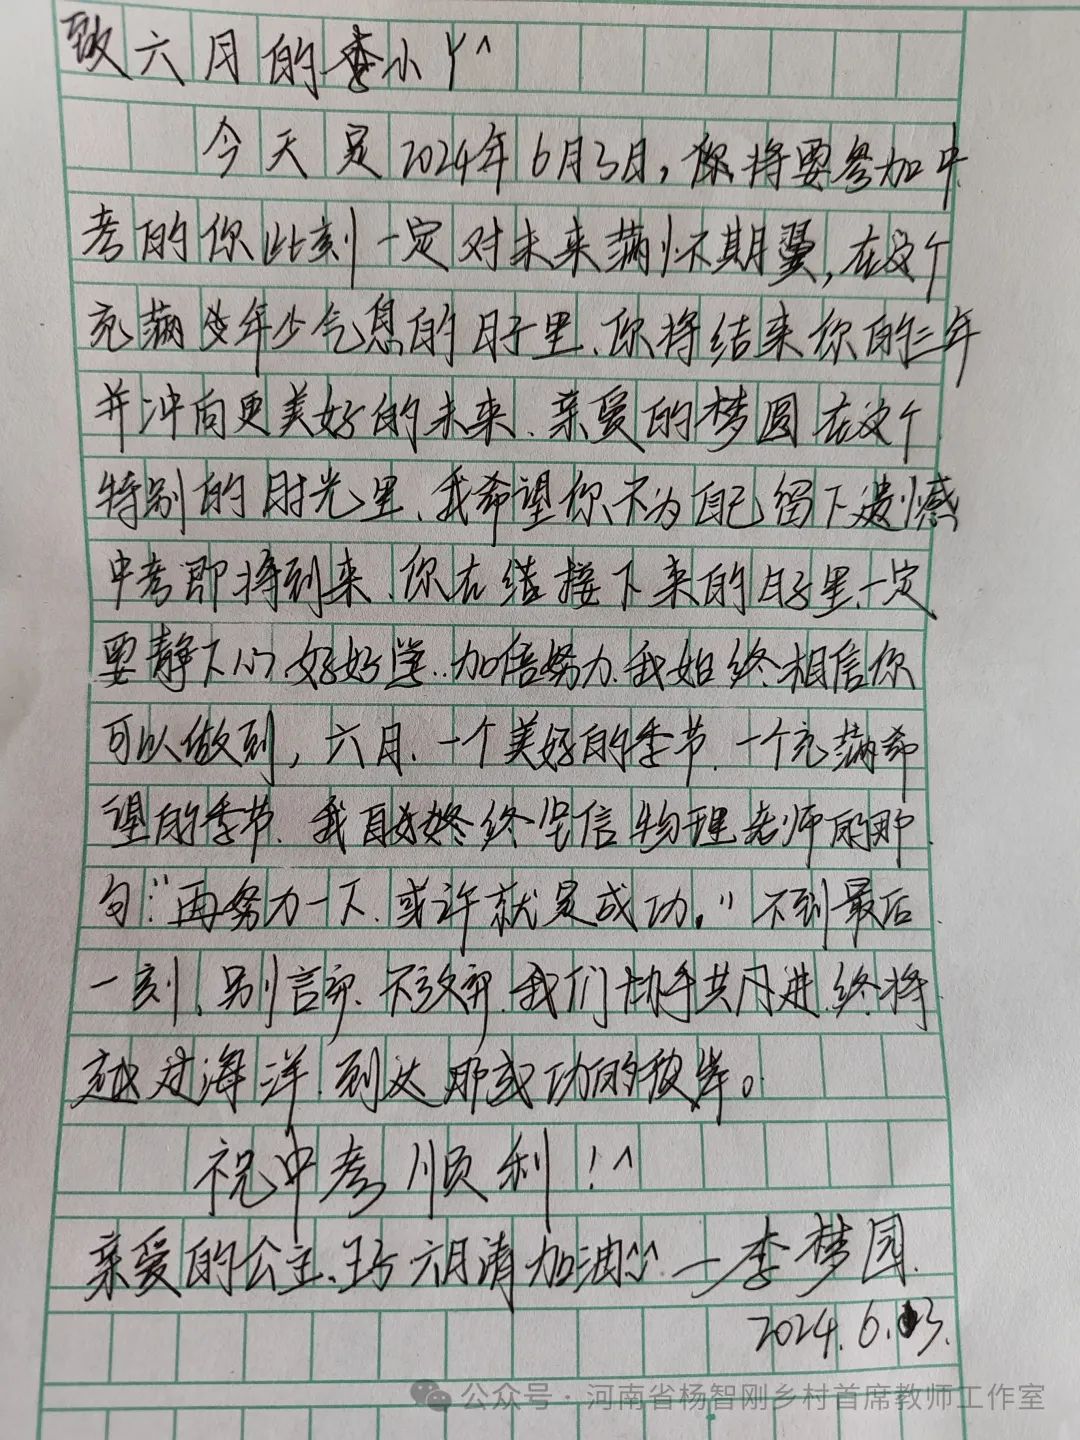 致六月的李小丫^
今天是2024年6月3日,你将要参加中
考的你此刻一定对未来满怀期翼,在这个
充满少年气息的日子里、你将结束你的三年
并冲向更美好的未来、亲爱的梦圆在这个
特别的时光里、我希望你不为自己留下遗憾
中考即将到来、你在接下来的日子里、一定
要静下心好好学、加倍努力、我始终相信你
可以做到,六月、一个美好的季节、一个充满希
望的季节、我始终坚信物理老师的那
句:“再努力一下、或许就是成功。”不到最后
一刻、别言弃、不放弃、我们协手共同进、终将
越过海洋、到达那成功的彼岸。
祝中考顺利!^
亲爱的公主、王子六月请加油^^ —李梦园
2024.6.3.
公众号·河南省杨智刚乡村首席教师工作室